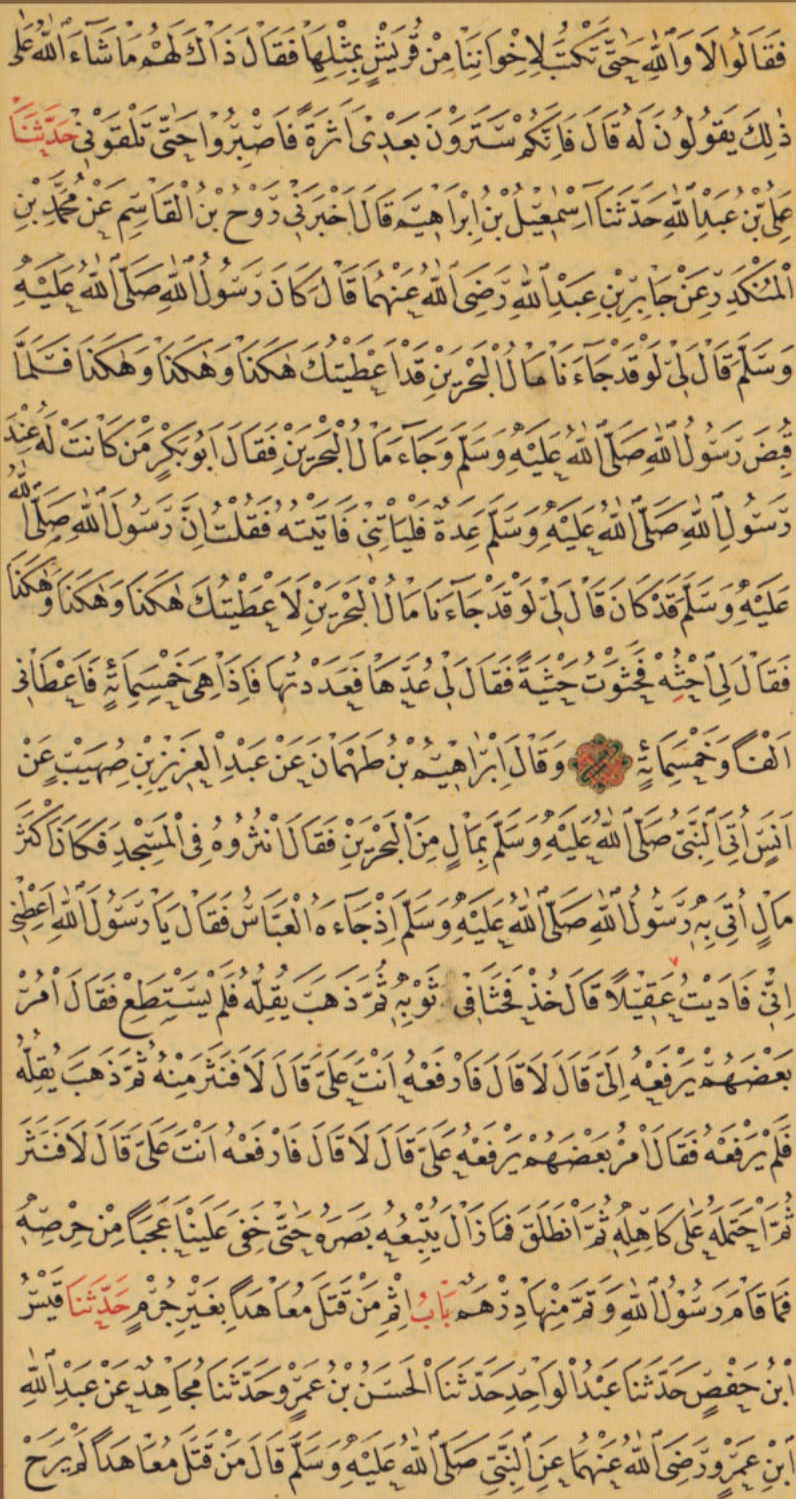 فَقَالُوا لَا وَاللّٰهِ حَتّٰى تَكْتُبَ لِاِخْوَانِنَا مِنْ قُرَيْشٍ بِمِثْلِهَا فَقَالَ ذَاكَ لَهُمْ مَا شَاءَ اللّٰهُ عَلٰى
ذٰلِكَ يَقُولُونَ لَهُ قَالَ فَاِنَّكُمْ سَتَرَوْنَ بَعْدِى اَثَرَةً فَاصْبِرُوا حَتّٰى تَلْقَوْنِى حَدَّثَنَا
عَلِىُّ بْنُ عَبْدِ اللّٰهِ حَدَّثَنَا اِسْمٰعِيلُ بْنُ اِبْرَاهِيمَ قَالَ اَخْبَرَنِى رَوْحُ بْنُ الْقَاسِمِ عَنْ مُحَمَّدِ بْنِ
الْمُنْكَدِرِ عَنْ جَابِرِ بْنِ عَبْدِ اللّٰهِ رَضِىَ اللّٰهُ عَنْهُمَا قَالَ كَانَ رَسُولُ اللّٰهِ صَلَّى اللّٰهُ عَلَيْهِ
وَسَلَّمَ قَالَ لِى لَوْ قَدْ جَاءَنَا مَالُ الْبَحْرَيْنِ قَدْ اَعْطَيْتُكَ هٰكَذَا وَهٰكَذَا وَهٰكَذَا فَلَمَّا
قُبِضَ رَسُولُ اللّٰهِ صَلَّى اللّٰهُ عَلَيْهِ وَسَلَّمَ وَجَاءَ مَالُ الْبَحْرَيْنِ فَقَالَ اَبُو بَكْرٍ مَنْ كَانَتْ لَهُ عِنْدَ
رَسُولِ اللّٰهِ صَلَّى اللّٰهُ عَلَيْهِ وَسَلَّمَ عِدَةٌ فَلْيَاْتِنِى فَاَتَيْتُهُ فَقُلْتُ اِنَّ رَسُولَ اللّٰهِ صَلَّى اللّٰهُ
عَلَيْهِ وَسَلَّمَ قَدْ كَانَ قَالَ لِى لَوْ قَدْ جَاءَنَا مَالُ الْبَحْرَيْنِ لَاَعْطَيْتُكَ هٰكَذَا وَهٰكَذَا وَهٰكَذَا
فَقَالَ لِى احْثُهْ فَحَثَوْتُ حَثْيَةً فَقَالَ لِى عُدَّهَا فَعَدَدْتُهَا فَاِذَا هِىَ خَمْسُمِائَةٍ فَاَعْطَانِى
اَلْفًا وَخَمْسَمِائَةٍ وَقَالَ اِبْرَاهِيمُ بْنُ طَهْمَانَ عَنْ عَبْدِ الْعَزِيزِ بْنِ صُهَيْبٍ عَنْ
اَنَسٍ اُتِىَ النَّبِىُّ صَلَّى اللّٰهُ عَلَيْهِ وَسَلَّمَ بِمَالٍ مِنَ الْبَحْرَيْنِ فَقَالَ انْثُرُوهُ فِى الْمَسْجِدِ فَكَانَ اَكْثَرَ
مَالٍ اُتِىَ بِهِ رَسُولُ اللّٰهِ صَلَّى اللّٰهُ عَلَيْهِ وَسَلَّمَ اِذْ جَاءَهُ الْعَبَّاسُ فَقَالَ يَا رَسُولَ اللّٰهِ اَعْطِنِى
اِنِّى فَادَيْتُ عَقِيلًا قَالَ خُذْ فَحَثَا فِى ثَوْبِهِ ثُمَّ ذَهَبَ يُقِلُّهُ فَلَمْ يَسْتَطِعْ فَقَالَ اْمُرْ
بَعْضَهُمْ يَرْفَعْهُ اِلَىَّ قَالَ لَا قَالَ فَارْفَعْهُ اَنْتَ عَلَىَّ قَالَ لَا فَنَثَرَ مِنْهُ ثُمَّ ذَهَبَ يُقِلُّهُ
فَلَمْ يَرْفَعْهُ فَقَالَ اْمُرْ بَعْضَهُمْ يَرْفَعْهُ عَلَىَّ قَالَ لَا قَالَ فَارْفَعْهُ اَنْتَ عَلَىَّ قَالَ لَا فَنَثَرَ
ثُمَّ احْتَمَلَهُ عَلٰى كَاهِلِهِ ثُمَّ انْطَلَقَ فَمَا زَالَ يُتْبِعُهُ بَصَرَهُ حَتّٰى خَفِىَ عَلَيْنَا عَجَبًا مِنْ حِرْصِهِ
فَمَا قَامَ رَسُولُ اللّٰهِ وَثَمَّ مِنْهَا دِرْهَمٌ بَابُ اِثْمِ مَنْ قَتَلَ مُعَاهَدًا بِغَيْرِ جُرْمٍ حَدَّثَنَا قَيْسُ
ابْنُ حَفْصٍ حَدَّثَنَا عَبْدُ الْوَاحِدِ حَدَّثَنَا الْحَسَنُ بْنُ عَمْرٍو حَدَّثَنَا مُجَاهِدٌ عَنْ عَبْدِ اللّٰهِ
ابْنِ عَمْرٍو رَضِىَ اللّٰهُ عَنْهُمَا عَنِ النَّبِىِّ صَلَّى اللّٰهُ عَلَيْهِ وَسَلَّمَ قَالَ مَنْ قَتَلَ مُعَاهَدًا لَمْ يَرِحْ